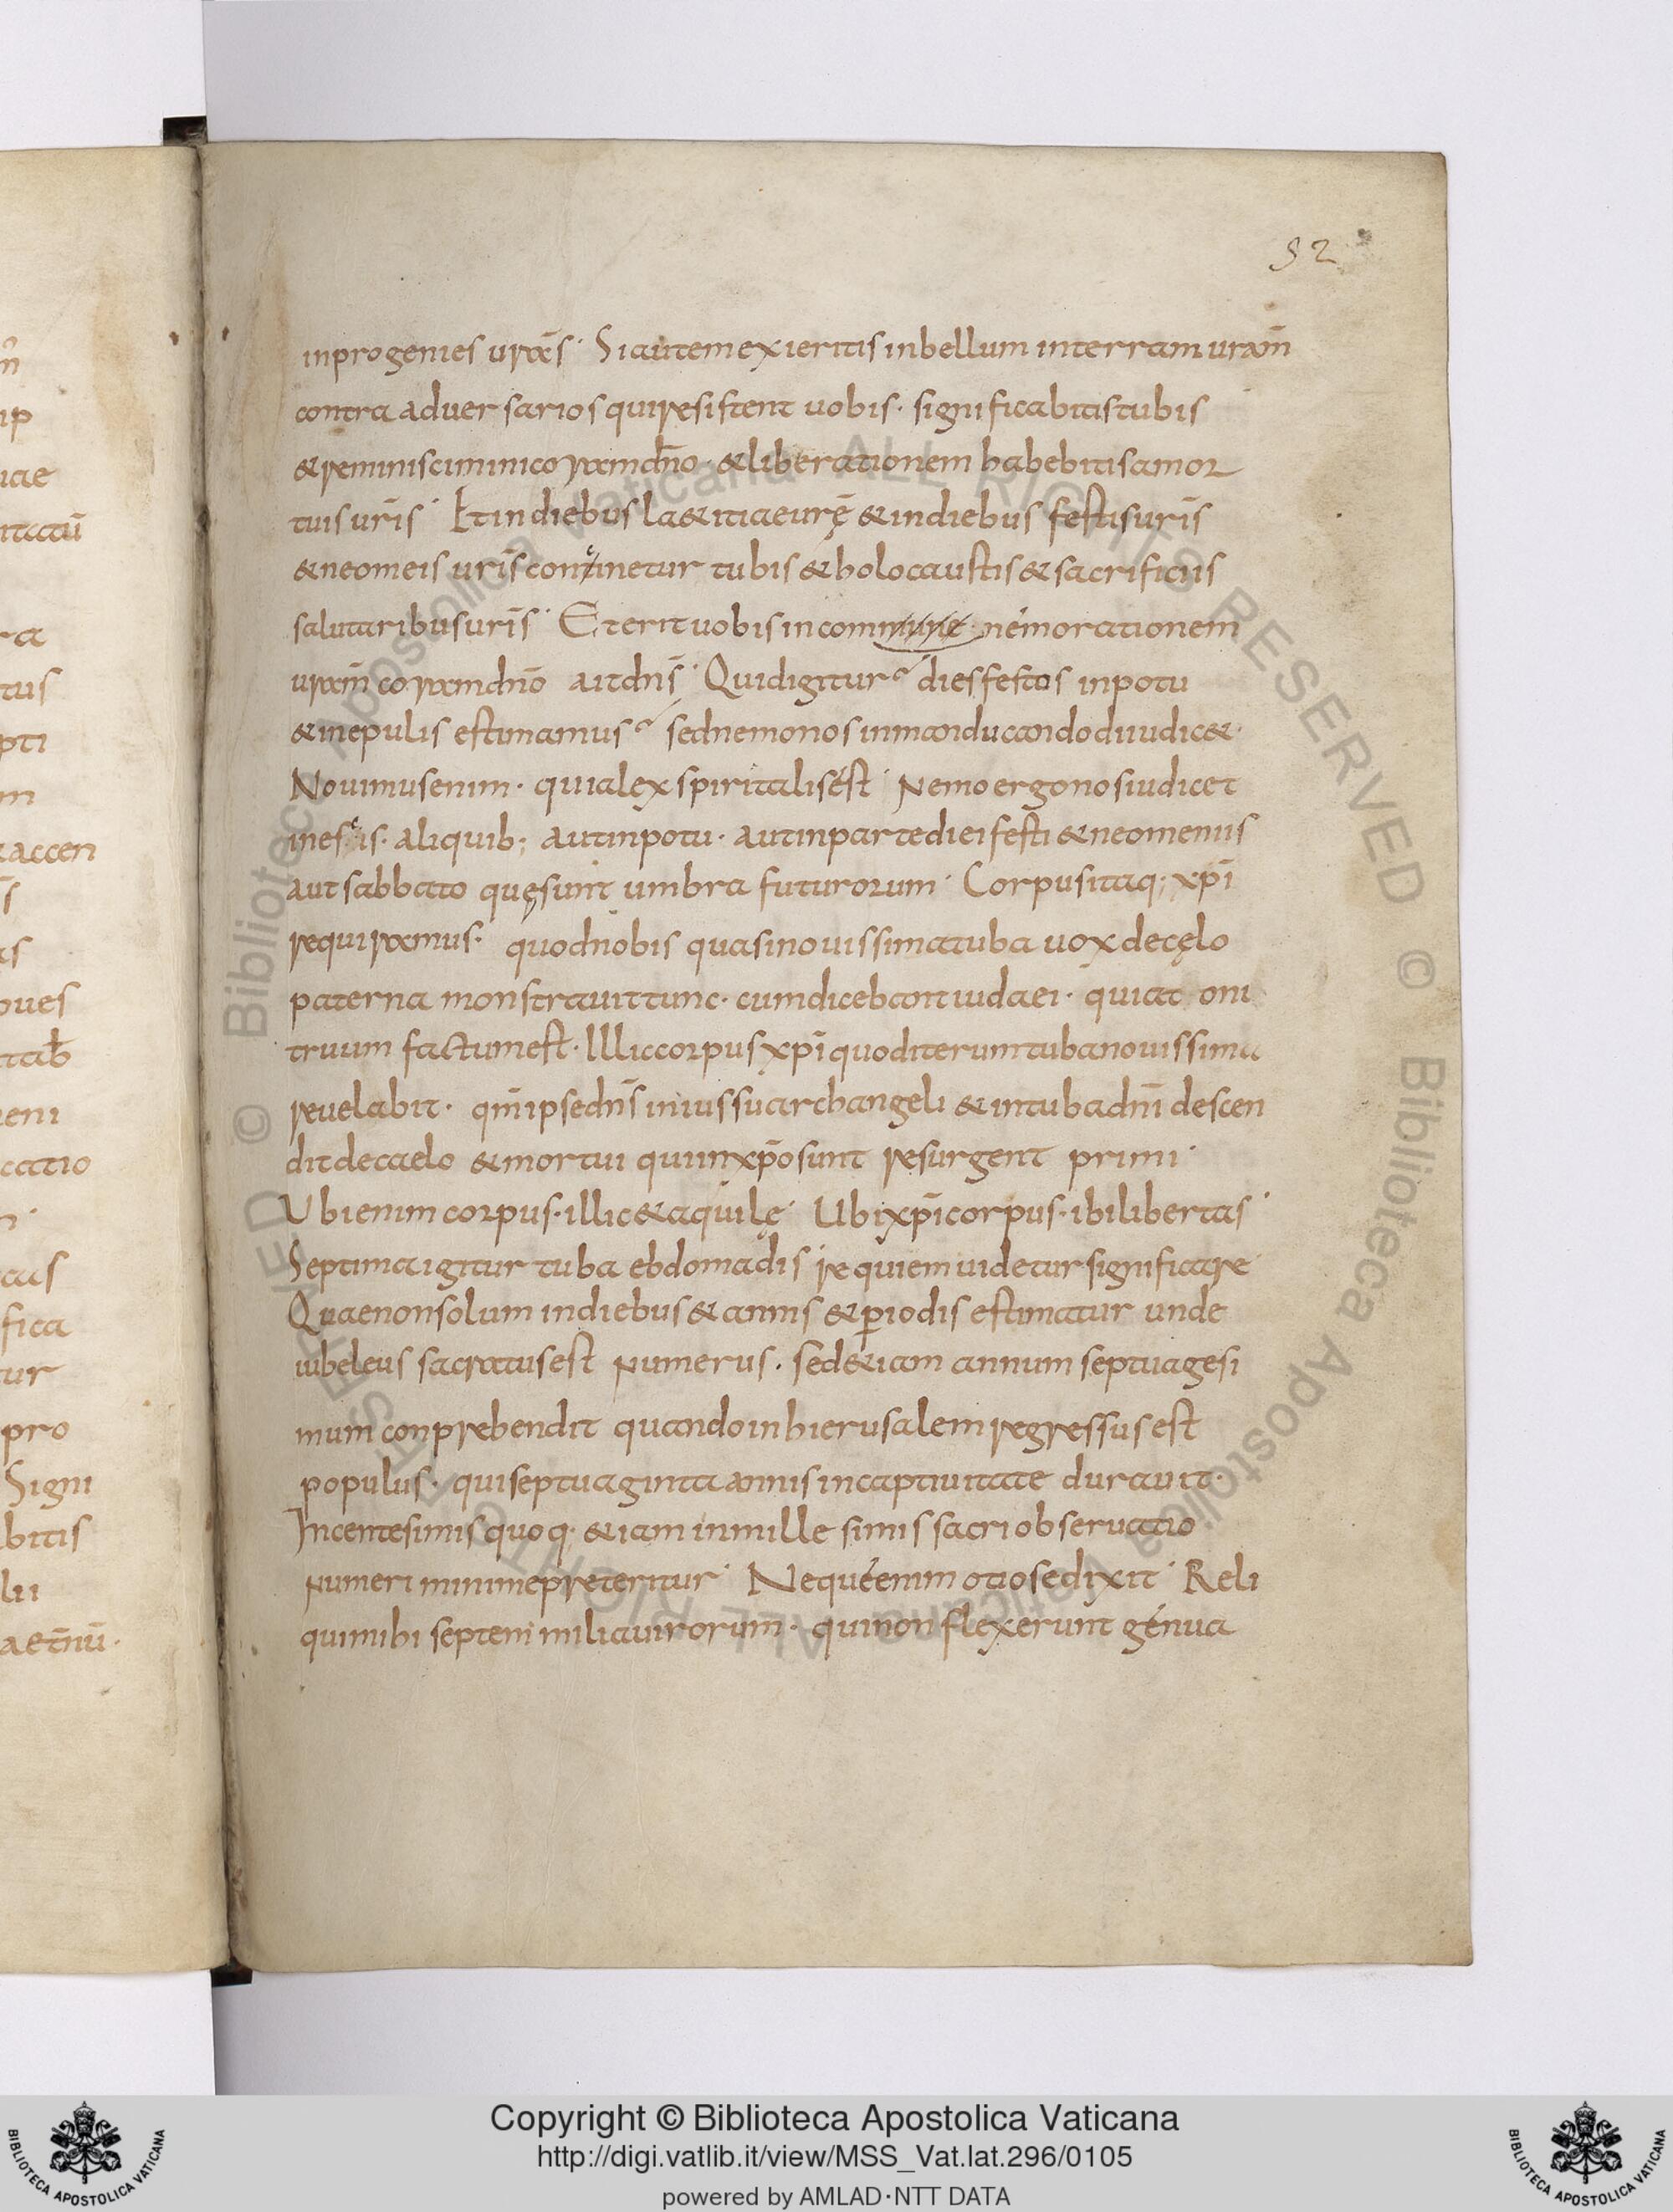 52
inprogenies uras̄ · Siautemexieritis inbellum interram uram̄
contra aduersarios quiresistent uobis · significabitis tubis
&reminiscimini coramdn̄o · &liberationem habebitis amor
tuis uris̄ · Etindiebus la&itiae eurę̄ &indiebus festis uris̄
&neomeis uris̄ continetur tubis &holocaustis &sacrificiis
salutaribus uris̄ · Eterit uobis incom nemorationem
uram̄ coramdn̄o aitdn̄s · Quidigitur dies festos inpotu
&inepulis estimamus sednemo nos inmanducando diiudic& ·
Nouimus enim · quialex spiritalis est · Nemo ergo nos iudicet
inescis · aliquib; autinpotu · autinparte diei festi &neomeniis
aut sabbato quę sunt umbra futurorum · Corpus itaq; xpī
requiramus · quodnobis quasi nouissima tuba uox decęlo
paterna monstrauit tunc · cumdicebant iudaei · quiat oni
truum factum est · Illic corpus xpī quod iterum tuba nouissima
reuelabit · qm̄ ipse dn̄s iniussu archangeli &intuba dn̄i descen
dit decaelo &mortui quiin xpō sunt resurgent primi ·
Ubi enim corpus · illic &aquilę · Ubi xpī corpus · ibi libertas ·
Septima igitur tuba ebdomadis requiem uidetur significare ·
Quae non solum indiebus &annis &periodis estimatur unde
iubeleus sacratus est numerus · sed&iam annum septuagesi
mum conprehendit quando inhierusalem regressus est
populus · qui septuaginta annis incaptiuitate durauit ·
Incentesimis quoq; &iam inmille simis sacri obseruatio
numeri minime preteritur · Neque enim otiose dixit · Reli
qui mihi septem milia uirorum · qui non flexerunt genua
Copyright © Biblioteca Apostolica Vaticana
http://digi.vatlib.it/view/MSS_Vat.lat.296/0105
powered by AMLAD·NTT DATA
BIBLIOTECA APOSTOLICA VATICANA
BIBLIOTECA APOSTOLICA VATICANA